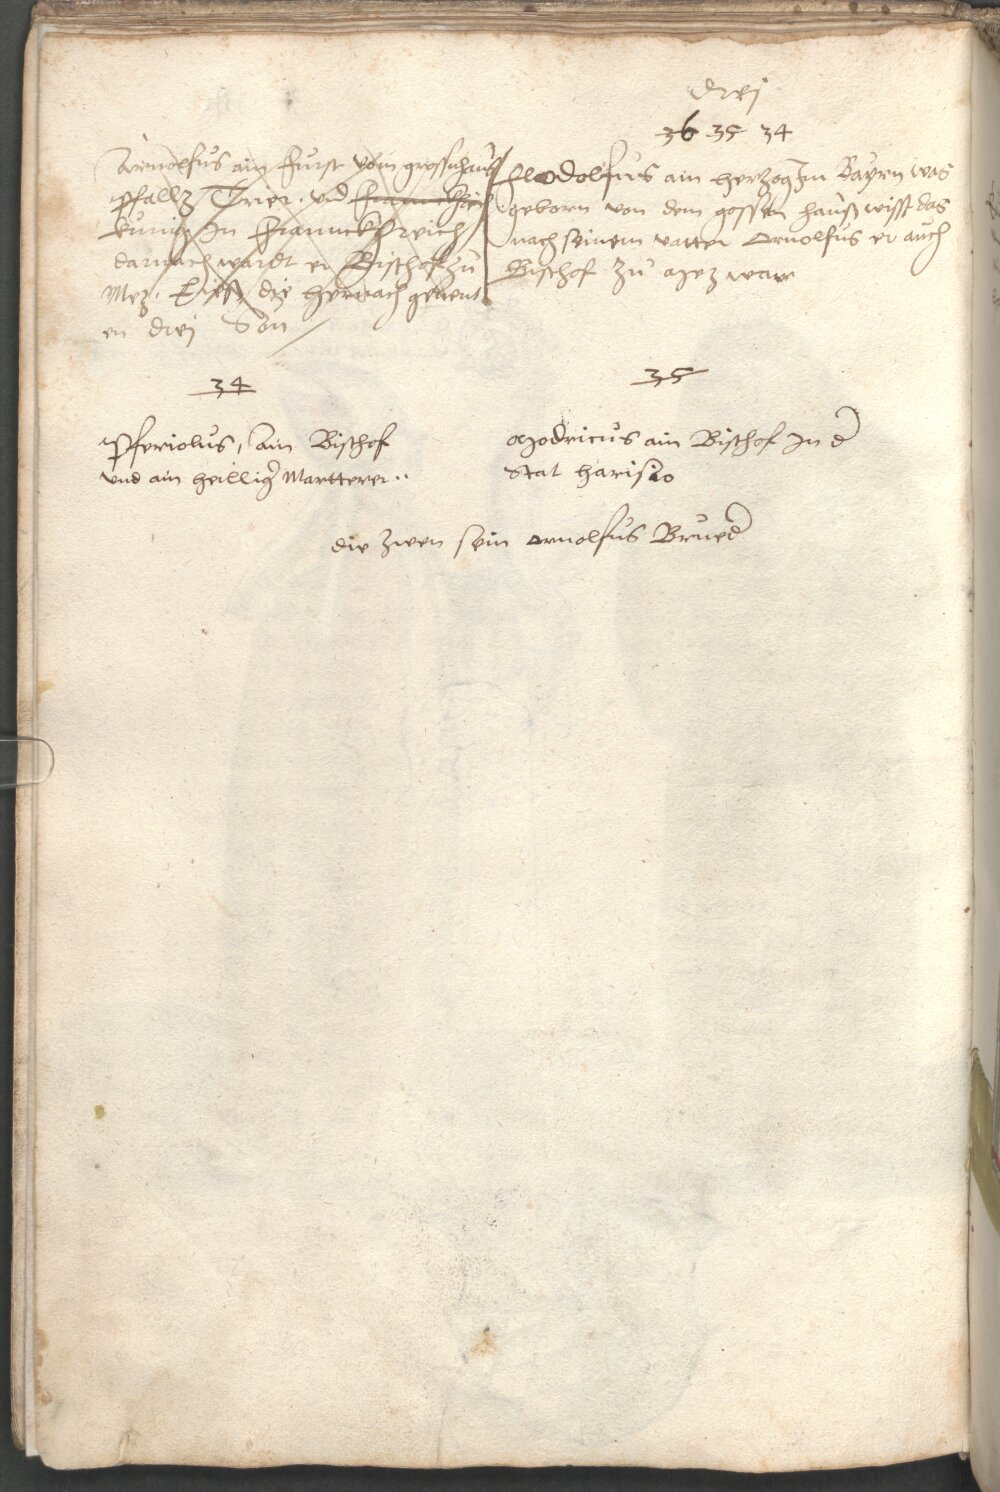 drej
36 35 34
Arnolfus ain Furst vom grossnhauß
pfallz Trier. und Franckhreich
kunig In Frannckhreich
darnach wardt er Bischof zu
Mez. Liess die hernach genent
en drej Sön
Clodolfus ain herzog In Bayrn was
geborn von dem gossen hauß wisst das
nach seinem vatter Arnolfus er auch
Bischof zu Mez war
34
Pferiolus, ain Bischof
und ain heillig Martterer..
35
Modricus ain Bischof In d
Stat harisio
die zwen sein Arnolfus Brued